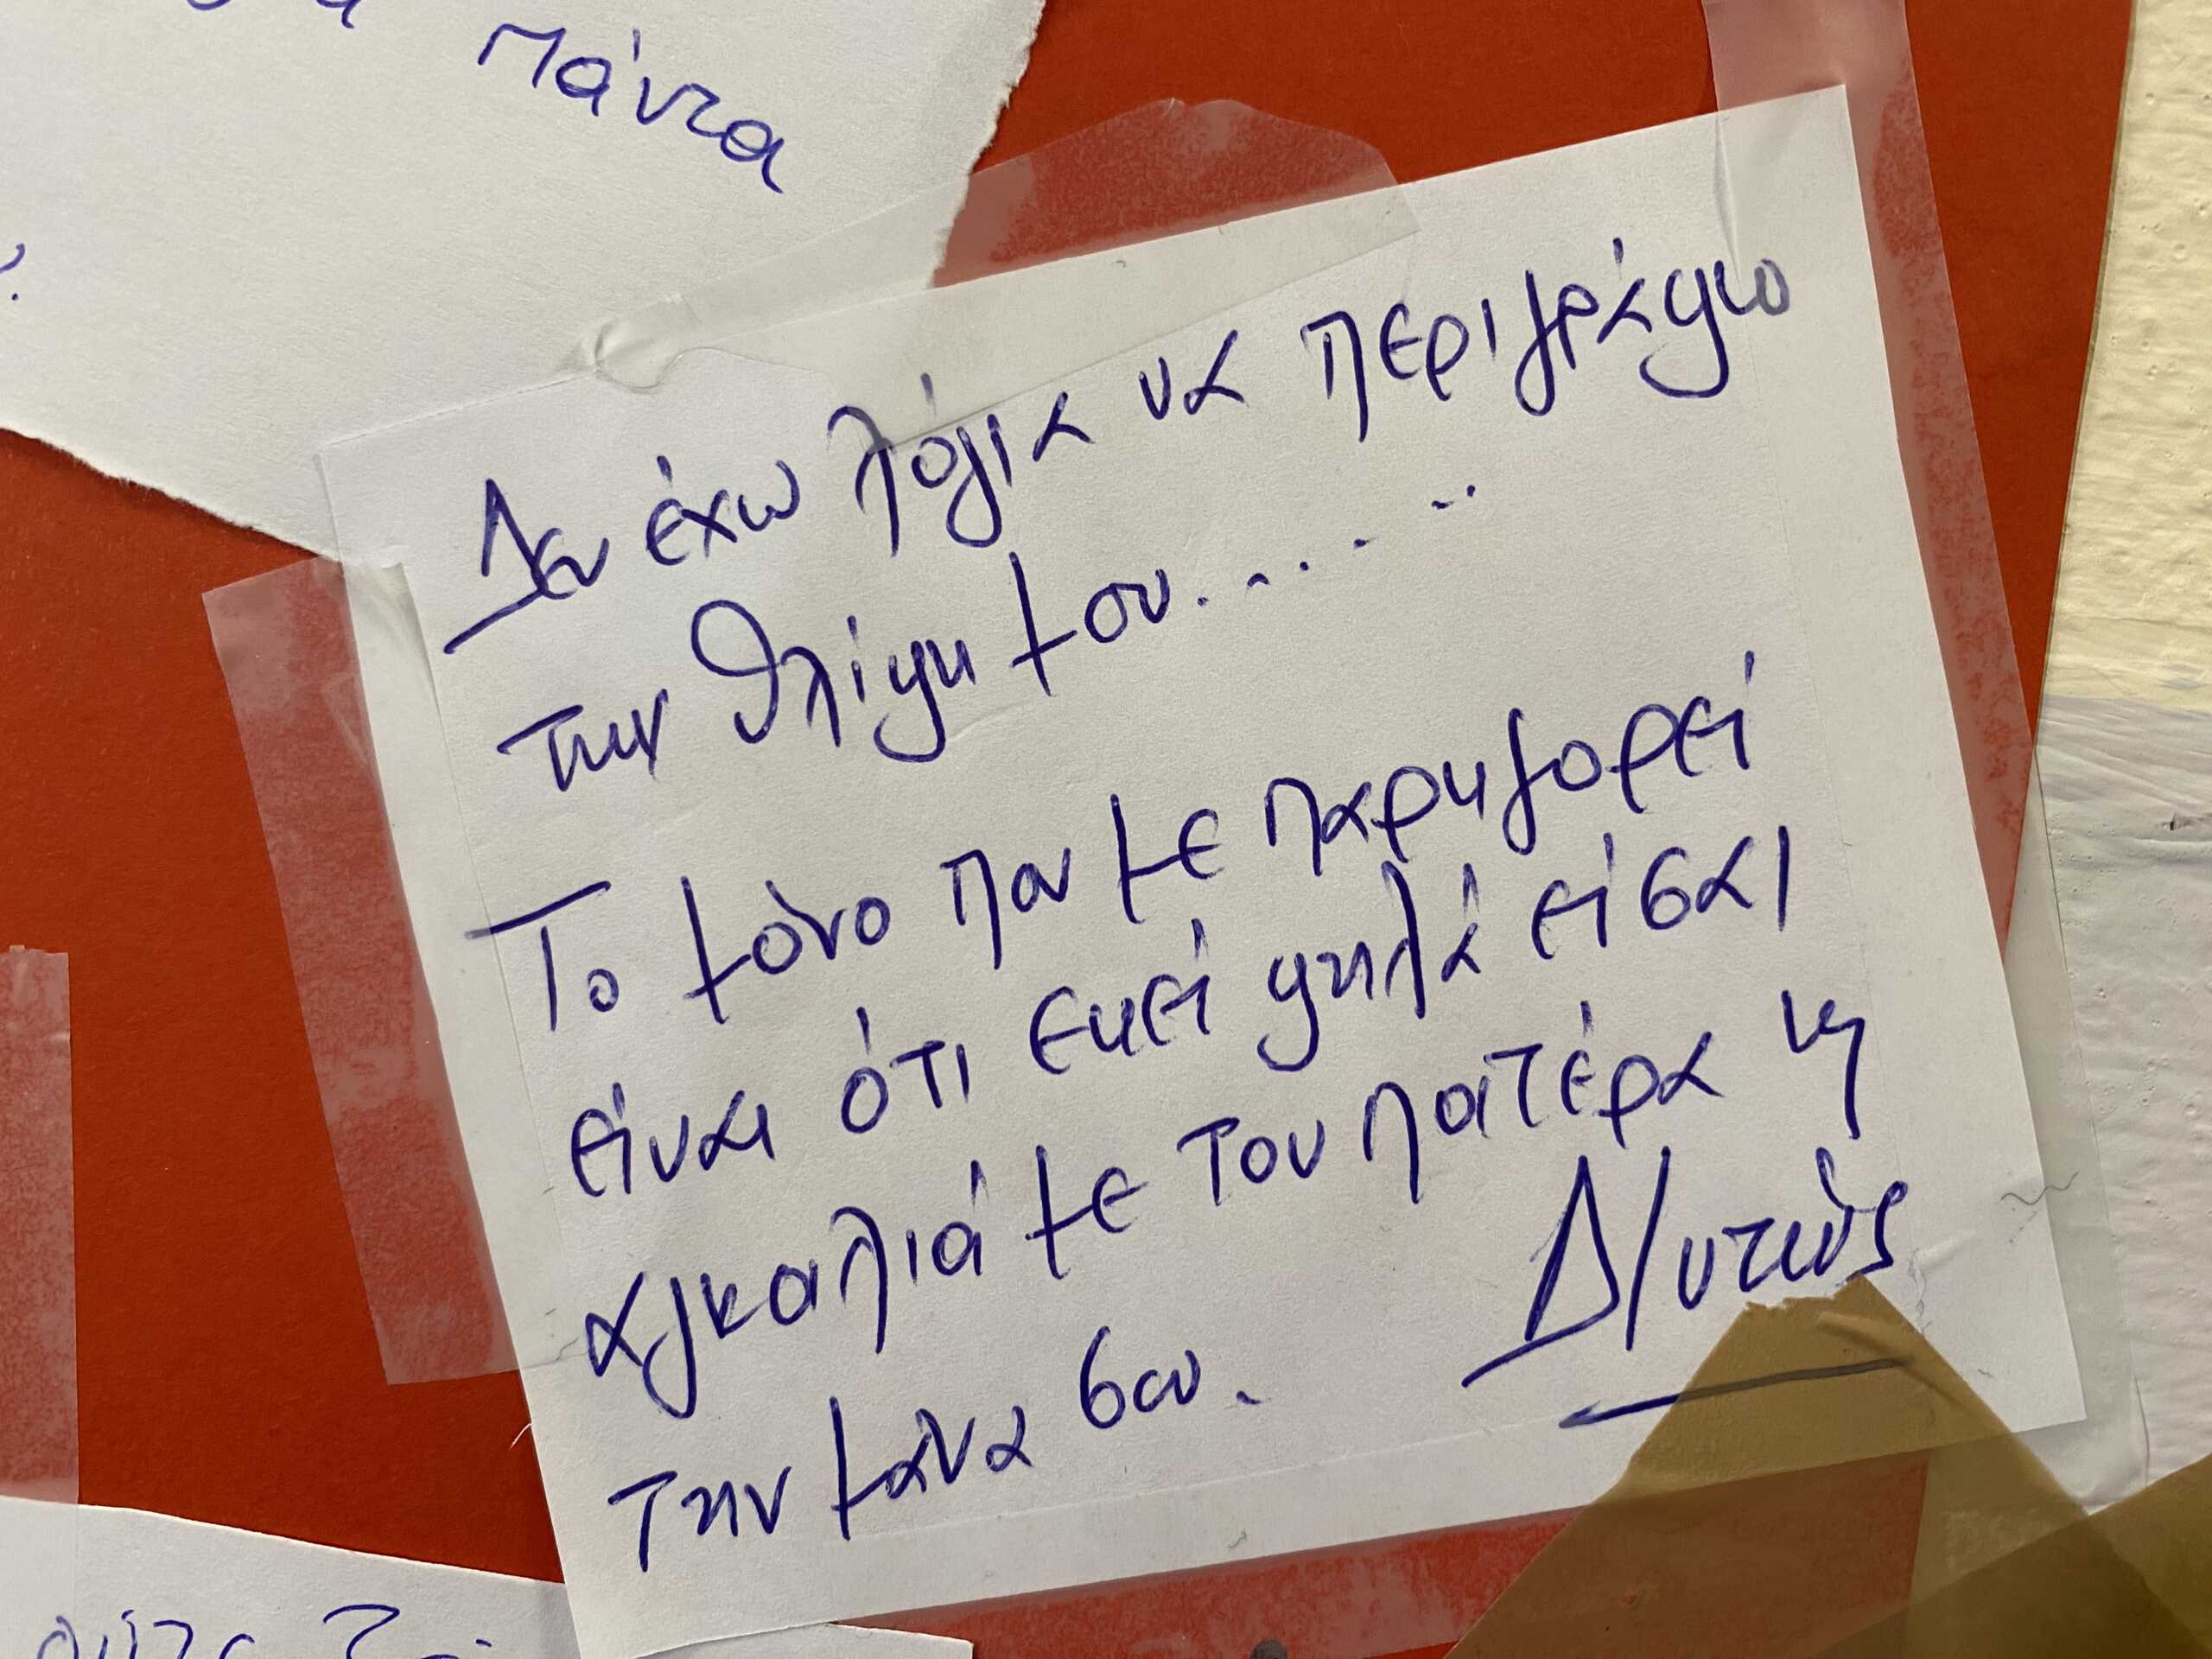 πάντα
Δεν έχω λόγια να περιγράψω
την θλίψη μου.......
Το μόνο που με παρηγορεί
είναι ότι εκεί ψηλά είσαι
αγκαλιά με τον πατέρα κ
την μάνα σου.
Δ/ντης